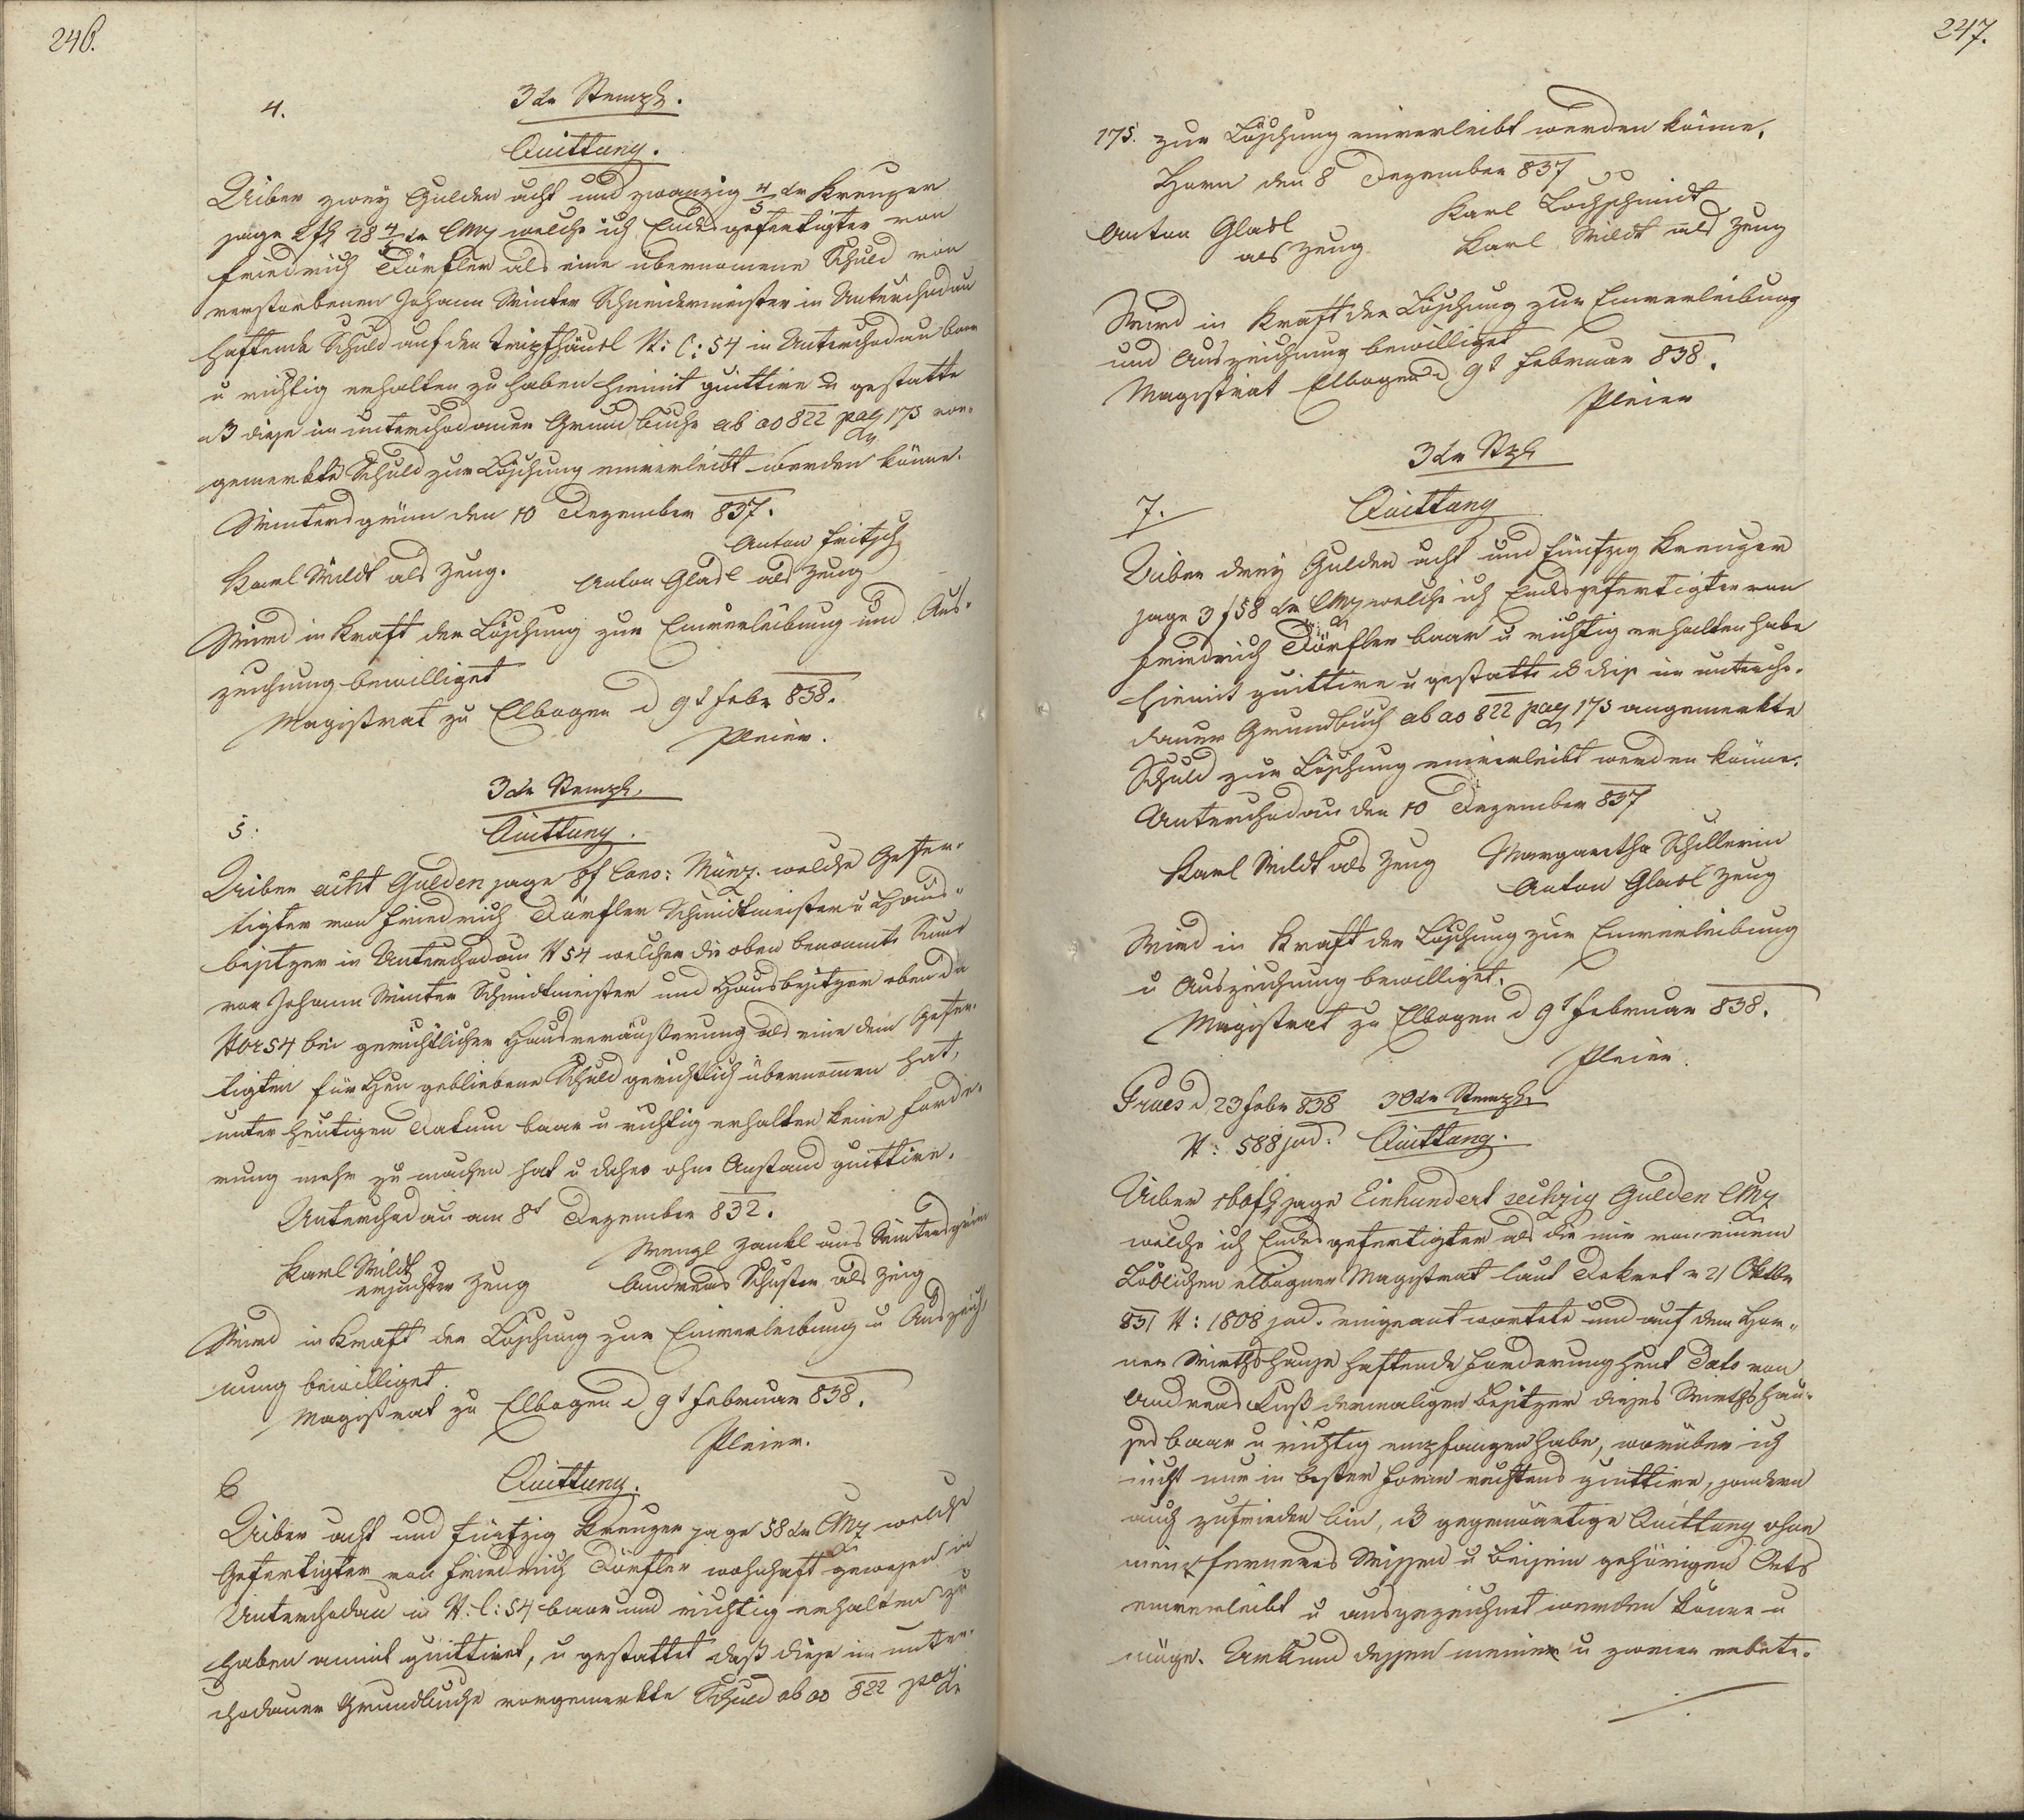 246.
4.
3 xr Stempl.
Quittung.
Uiber zwey Gulden acht und zwanzig 4/5 xr Kreuzer
sage 2 fl 28 4/5 xr CMz welche ich Endesgefertigter von
Friedrich Dörfler als eine übernomene Schuld von
verstorbenen Johann Winter Schneidermeister in Unterchodau
haftende Schuld auf den Tripfhäusl N: C: 54 in Unterchodau baar
u richtig erhalten zu haben hiemit quittire u gestatte
daß diese im unterchodauer Grundbuche ab ao 822 pag 175 vor-
gemerkte Schuld zur Löschung einverleibt werden könne.
Wintersgrün den 10 Dezember 837.
Anton Fritsch
Karl Wildt als Zeug. Anton Glasl als Zeug
Wird in Kraft der Löschung zur Einverleibung und Aus-
zeichnung bewilliget
Magistrat zu Elbogen d 9t Febr 838.
Pleier.
3 xr Stempl.
5.
Quittung.
Uiber acht Gulden sage 8 f Conv: Münz. welche Gefer-
tigter von Friedrich Dörfler Schmidtmeister u Haus-
besitzer in Unterchodau N 54 welcher die oben benannte Sume
von Johann Winter Schmidtmeister und Hausbesitzer ebenda
Nor 54 bei gerichtlicher Hausveräußerung als eine dem Gefer-
tigten für Ihn gebliebene Schuld gerichtlich übernomen hat,
unter heutigen Datum baar u richtig erhalten keine Forde-
rung mehr zu machen hat u daher ohne Anstand quittire.
Unterchodau am 8t Dezember 832.
Wenzl Zankl aus Wintersgrün
Karl Wildt
ersuchter Zeug Andreas Schuster als Zeug
Wird in Kraft der Löschung zur Einverleibung u Auszeich-
nung bewilliget.
Magistrat zu Elbogen d 9t Februar 838.
Pleier.
6
Quittung.
Uiber acht und fünfzig Kreuzer sage 58 xr CMz welche
Gefertigter von Friedrich Dörfler wohnhaft gewesen in
Unterchodau in N: C: 54 baar und richtig erhalten zu
haben anmit quittiret, u gestattet daß diese im unter-
chodauer Grundbuche vorgemerkte Schuld ab ao 822 pag.
247.
175. zur Löschung einverleibt werden könne.
Horn den 8 Dezember 837
Karl Lochschmidt
Anton Glasl
als Zeug Karl Wildt als Zeug
Wird in Kraft der Löschung zur Einverleibung
und Auszeichnung bewilliget
Magistrat Elbogen d 9t Februar 838.
Pleier
3 xr Stpl
7.
Quittung
Uiber drey Gulden acht und fünfzig Kreuzer
sage 3 f 58 xr CMz welche ich Endesgefertigter von
Friedrich Dörfler baar u richtig erhalten habe
hiemit quittire u gestatte daß dise im untercho-
dauer Grundbuch ab ao 822 pag 175 angemerkte
Schuld zur Löschung einverleibt werden könne.
Unterchodau den 10 Dezember 837
Karl Wildt als Zeug Margaretha Schillerin
Anton Glasl Zeug
Wird in Kraft der Löschung zur Einverleibung
u Auszeichnung bewilliget.
Magistrat zu Elbogen d 9t Februar 838.
Pleier.
Praes d 23 Febr 838 30 xr Stempl.
N: 588 jud. Quittung.
Uiber 160 fl sage Einhundert sechzig Gulden CMz
welche ich Endesgefertigter als die mir von einem
Löblichen elbogner Magistrat laut Dekret v 21 Oktbr
831 N: 1808 jud. eingeantwortete und auf dem Hor-
ner Wirthshause haftende Forderung heut Dato von
Andreas Fuß dermaligen Besitzer dieses Wirthshau-
ses baar u richtig empfangen habe, worüber ich
nicht nur in bester Form rechtens quittire, sondern
auch zufrieden bin, daß gegenwärtige Quittung ohne
mein ferneres Wissen u Beisein gehörigen Orts
einverleibt u ausgezeichnet werden könne u
möge. Urkund dessen meine u zweier erbete-